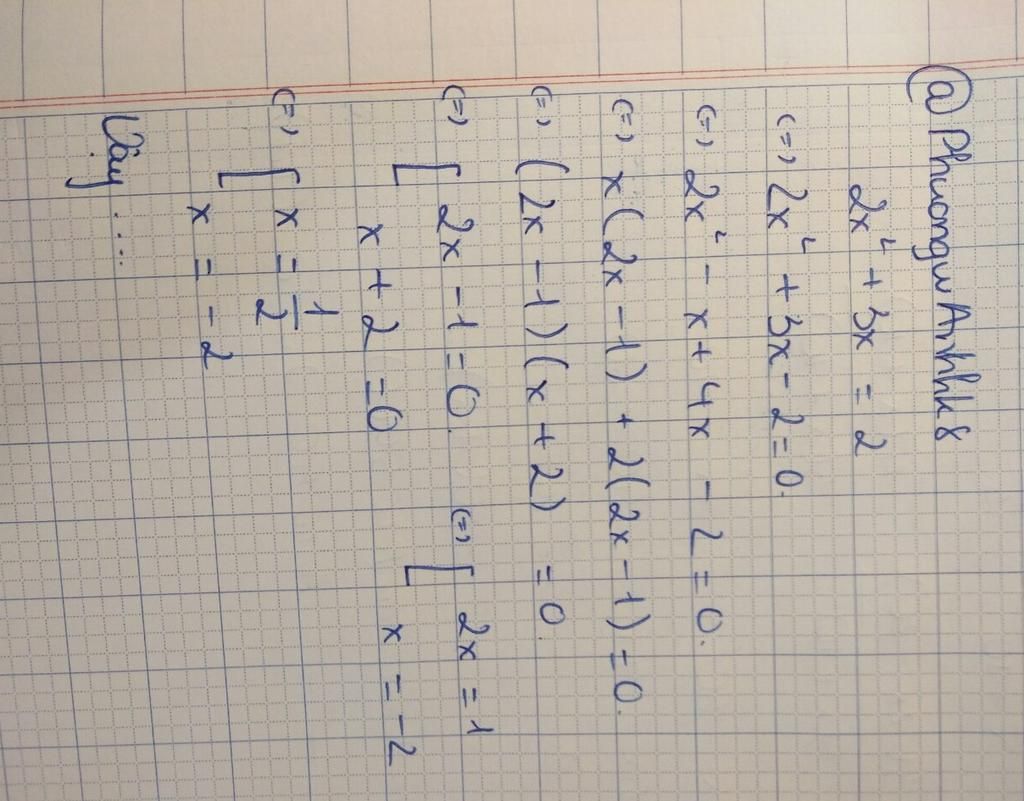 @PhuongwAnhhk8
2x² + 3x = 2
(=) 2x² + 3x - 2 = 0.
(=) 2x² - x + 4x - 2 = 0.
(=) x(2x - 1) + 2(2x - 1) = 0.
(=) (2x - 1)(x + 2) = 0.
(=) [ 2x - 1 = 0. (=) [ 2x = 1
x + 2 = 0 x = -2
(=) [ x = 1/2
x = -2
Vậy .....